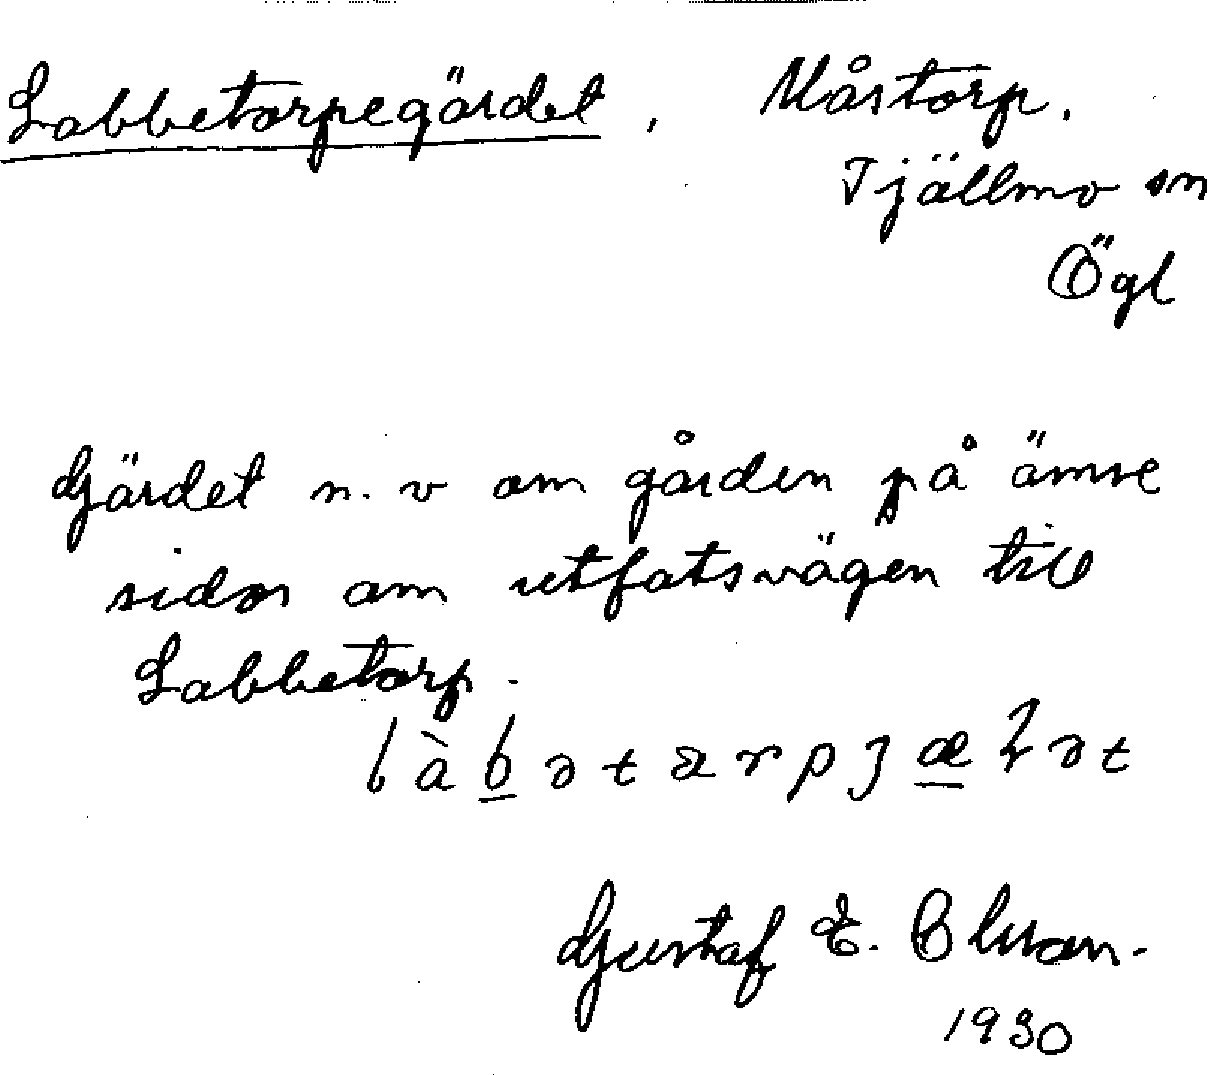 Labbetorpegärdet, Måstorp.
Tjällmo sn
Ögl
Gärdet n. v om gården på ämse
sidor om utfatsvägen till
Labbetorp.
Gustaf E.
1930